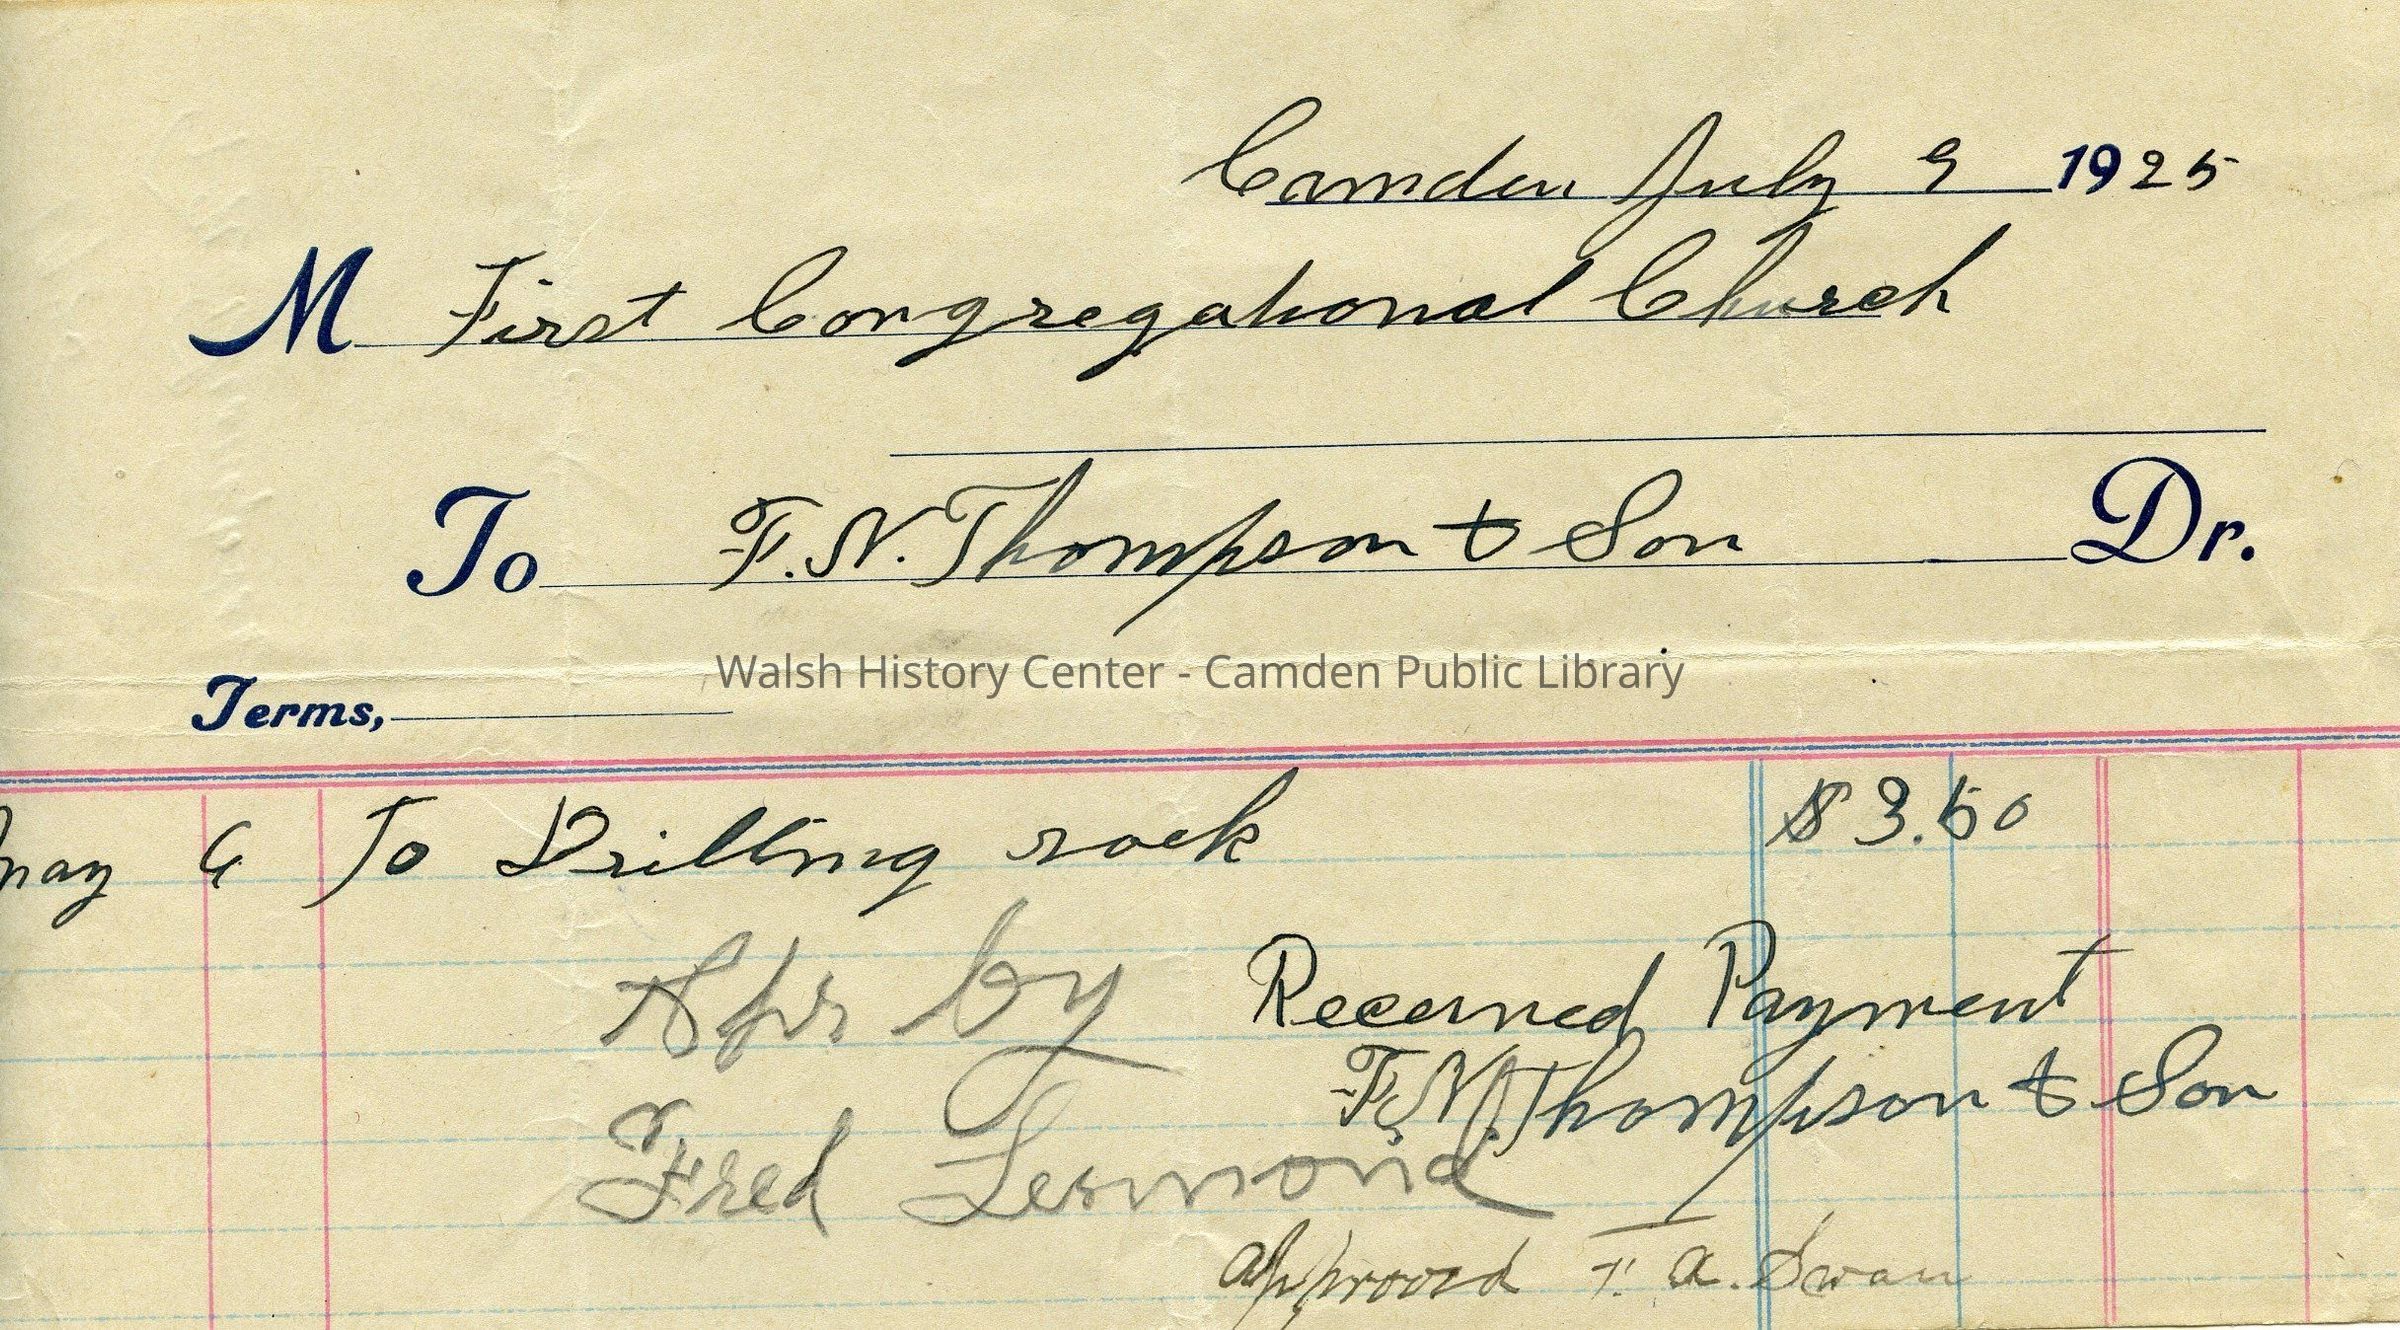 Camden July 9 1925
M First Congregational Church
To F. N. Thompson & Son Dr.
Walsh History Center - Camden Public Library
Terms,
may 6 To Drilling rock $3.50
by Received Payment
F. N. Thompson & Son
Fred
approved F. A. Swan